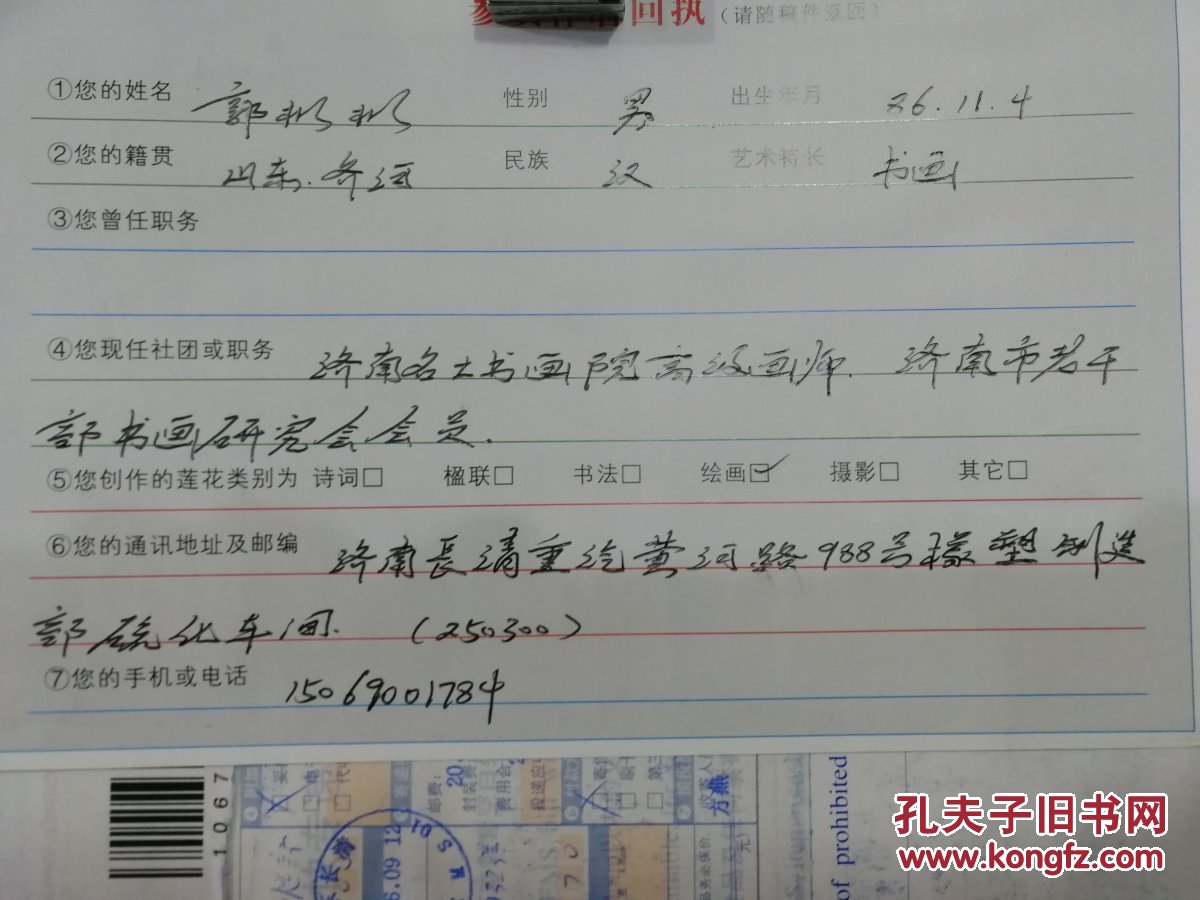 回执 (请随稿件返回)
①您的姓名 郭彬彬 性别 男 出生年月 86.11.4
②您的籍贯 山东.齐河 民族 汉 艺术特长 书画
③您曾任职务
④您现任社团或职务 济南名士书画院高级画师. 济南市老干
部书画研究会会员.
⑤您创作的莲花类别为 诗词□ 楹联□ 书法□ 绘画☑ 摄影□ 其它□
⑥您的通讯地址及邮编 济南長清重汽黄河路988号橡塑制造
部硫化车间. (250300)
⑦您的手机或电话 15069001784
1067
邮费:
20
费用合
投递应
收寄人
方燕
6.09 12
of prohibited
孔夫子旧书网
www.kongfz.com